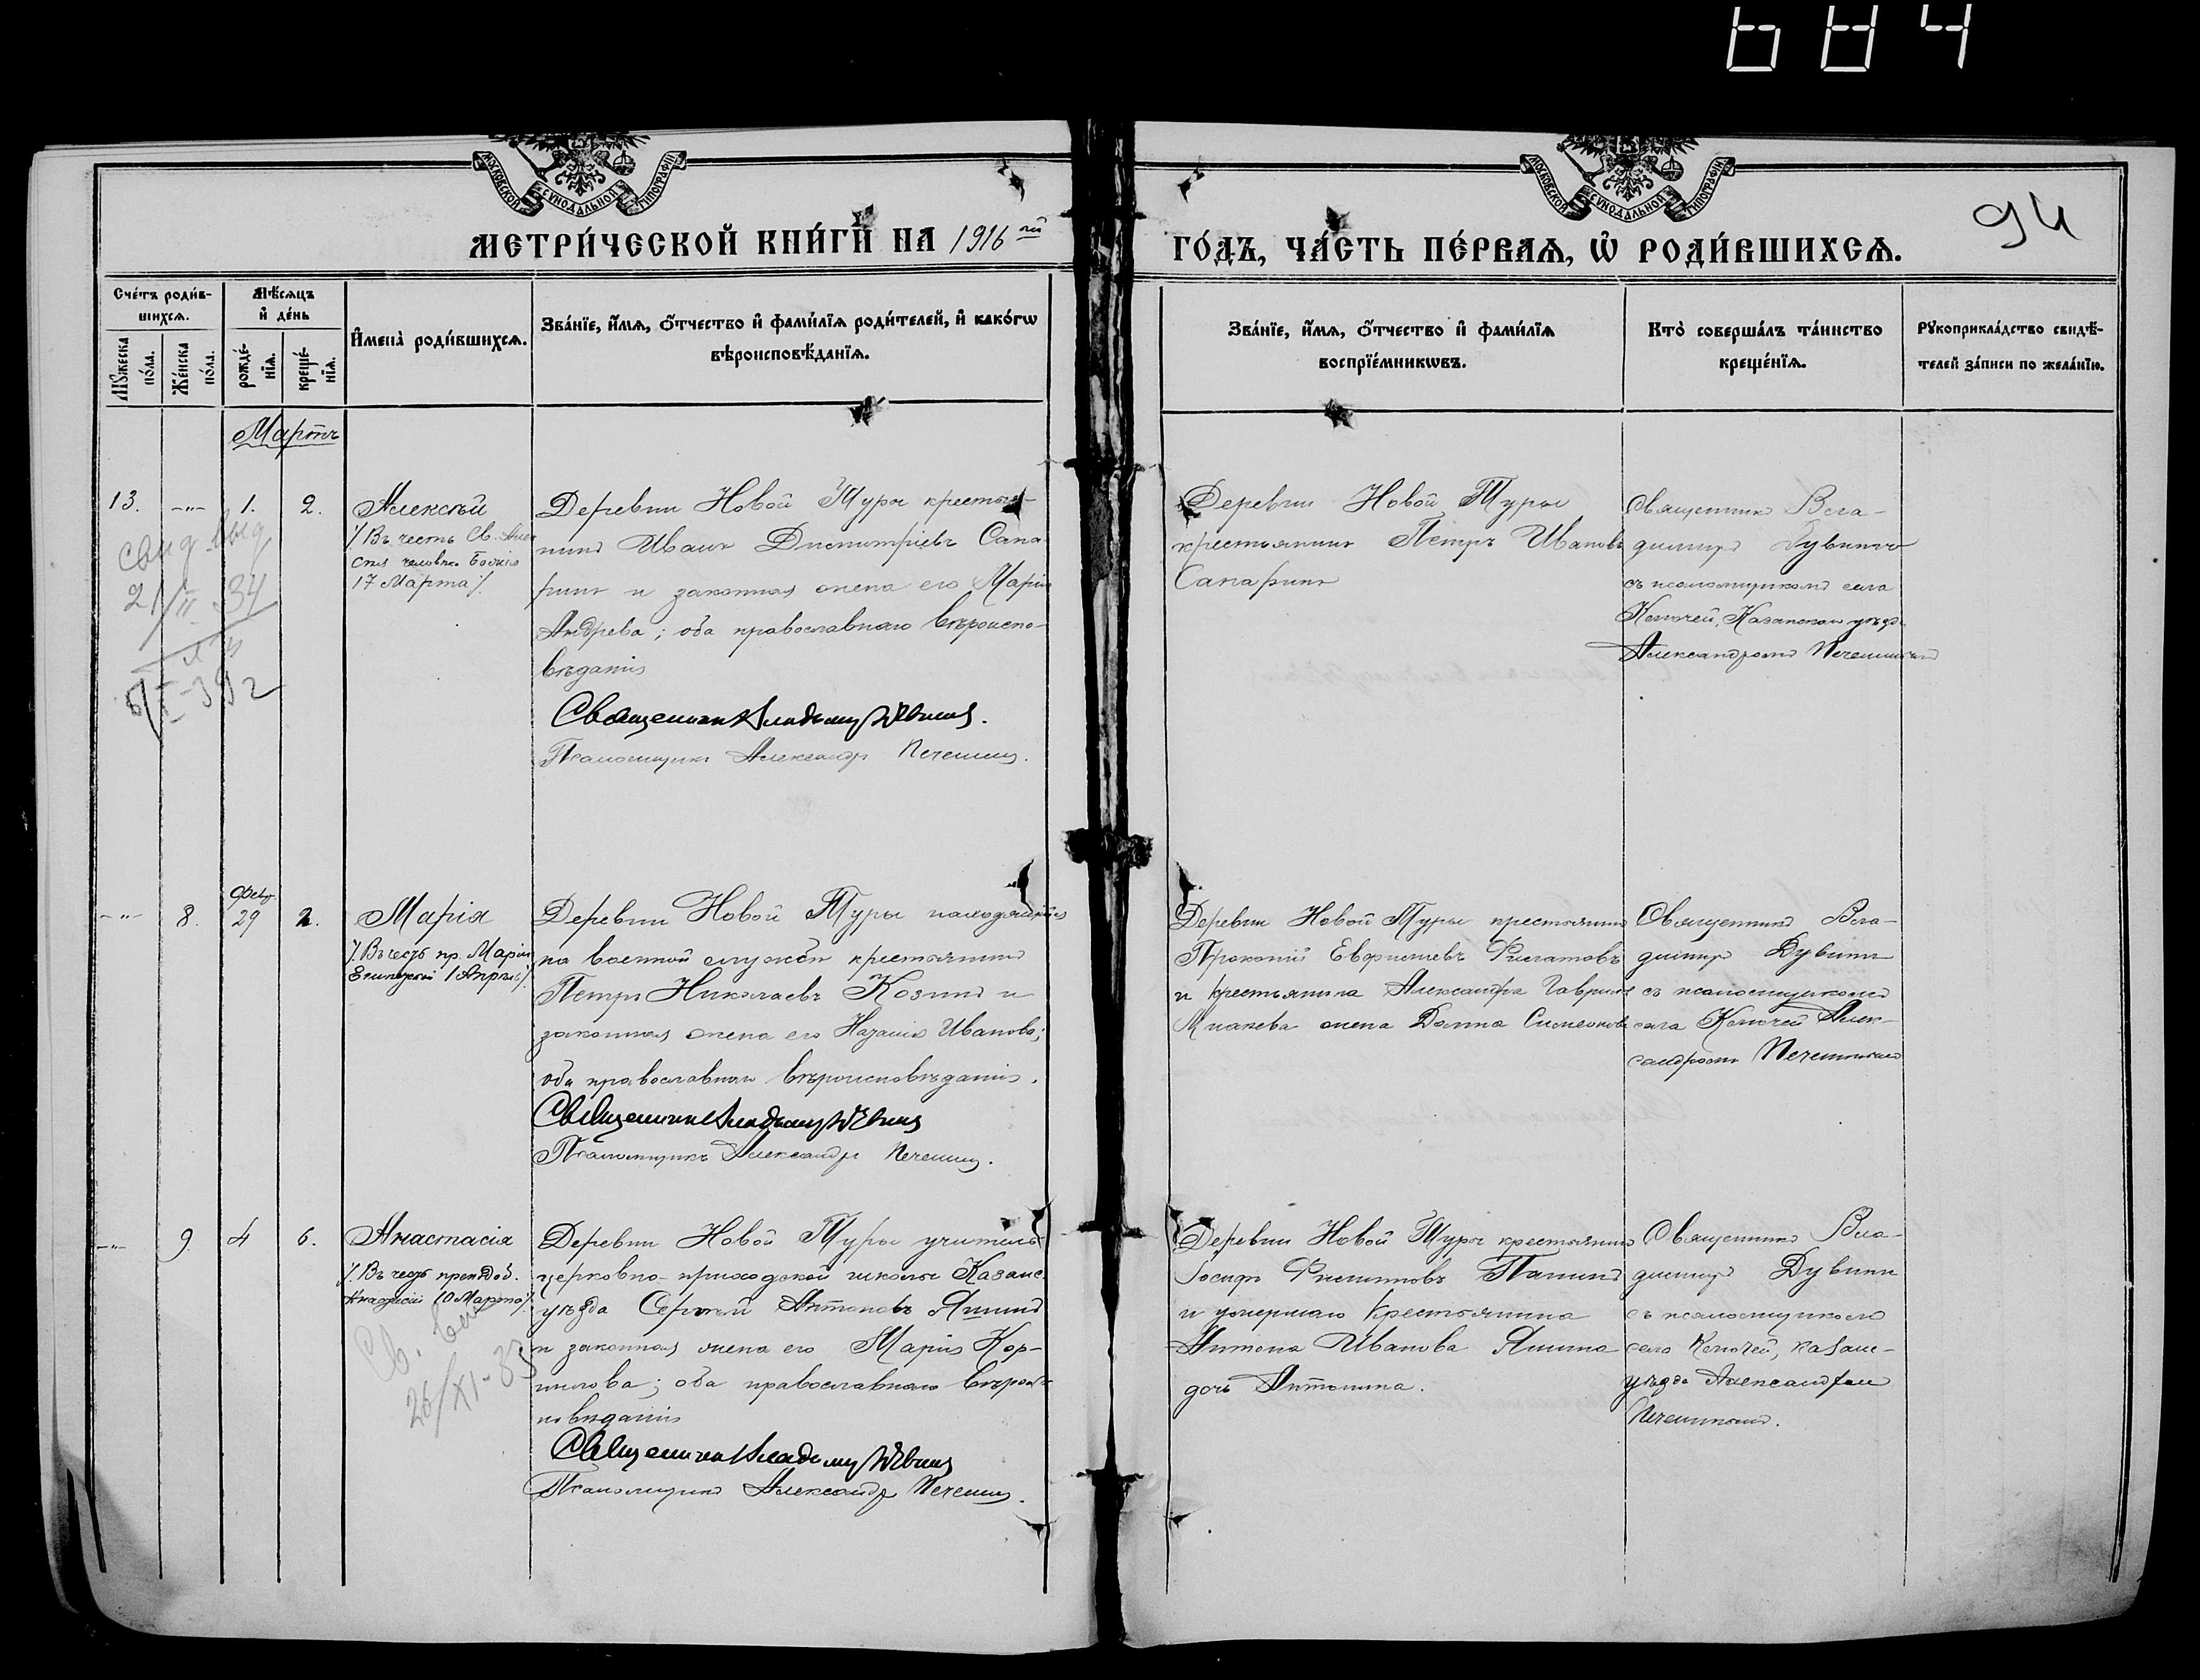 684
МОСКОВСКОЙ СѴНОДАЛЬНОЙ ТИПОГРАФІИ
МОСКОВСКОЙ СѴНОДАЛЬНОЙ ТИПОГРАФІИ
94
МЕТРИ́ЧЕСКОЙ КНИ́ГИ НА 1916 гой
ГО́ДЪ, ЧА́СТЬ ПЕ́РВАѦ, Ѡ҆ РОДИ́ВШИХСѦ.
Сче́тъ роди́в-
шихсѧ.
Мꙋ́жеска по́ла.
Же́нска по́ла.
Мѣ́сѧцъ
и҆ де́нь
рожде́-
нїѧ.
креще́-
нїѧ.
И҆мена̀ роди́вшихсѧ.
Зва́нїе, и҆́мѧ, ѻ҆́тчество и҆ фами́лїѧ роди́телей, и҆ како́гѡ
вѣроисповѣ́данїѧ.
Зва́нїе, и҆́мѧ, ѻ҆́тчество и҆ фами́лїѧ
воспрїе́мникѡвъ.
Кто̀ соверша́лъ та́инство
креще́нїѧ.
Рꙋкоприкла́дство свидѣ́-
телей за́писи по жела́нїю.
Мартъ
13. -"- 1. 2.
Алексѣй
/. Въ честь Св. Алек
сѣя человѣка Божія
17 Марта ./.
Деревни Новой Туры крестья-
нинъ Иванъ Димитріевъ Сапа
ринъ и законная жена его Марія
Андрева; оба православнаго вѣроиспо-
вѣданія
Священникъ Владиміръ Дувинъ.
Псаломщикъ Александръ Печешинъ.
Деревни Новой Туры
крестьянинъ Петръ Ивановъ
Сапаринъ
Священникъ Вла-
диміръ Дувинъ
съ псаломщикомъ села
Ключей, Казанскаго уѣзда
Александромъ Печешинымъ
21/II 34
-"- 8. Февр. 29 2.
Марія
/. Въ честь пр. Маріи
Египетской 1 Апрѣля ./.
Деревни Новой Туры находящійся
на военной службѣ крестьянинъ
Петръ Николаевъ Козинъ и
законная жена его Иванова;
оба православнаго вѣроисповѣданія.
Священникъ Владиміръ Дувинъ
Псаломщикъ Александръ Печешинъ.
Деревни Новой Туры крестьянинъ
Прокопій
и крестьянина Александра Гаврилова
жена Домна
Священникъ Вла-
диміръ Дувинъ
съ псаломщикомъ
села Ключей Алек-
сандромъ Печешинымъ
-"- 9. 4 6.
Анастасія
/. Въ честь преподоб.
Анастасіи 10 Марта ./.
Деревни Новой Туры учитель
церковно-приходской школы Казанс.
уѣзда Сергѣй Антоновъ Яшинъ
и законная жена его Марія Кор-
нилова; оба православнаго вѣрои-
повѣданія
Священникъ Владиміръ Дувинъ
Псаломщикъ Александръ Печешинъ.
Деревни Новой Туры крестьянинъ
Іосифъ Филипповъ Панинъ
и умершаго крестьянина
Антона Иванова Яшина
дочь Антонина.
Священникъ Вла-
диміръ Дувинъ
съ псаломщикомъ
села Ключей, Казанс-
уѣзда Александромъ
Печешинымъ.
26/XI-35